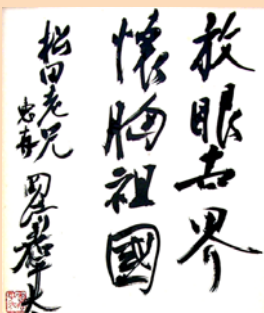 放眼世界
懷胸祖國
松田老兄
惠存